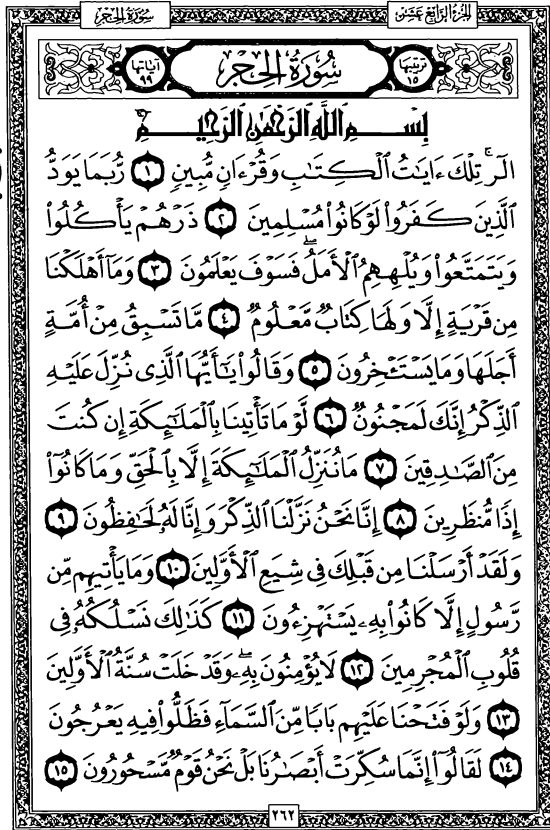 الجزء الرابع عشر
سورة الحجر
ترتيبها ١٥
سُورَةُ الحِجْر
آياتها ٩٩
بِسْمِ ٱللَّهِ ٱلرَّحْمَٰنِ ٱلرَّحِيمِ
الٓرۚ تِلْكَ ءَايَٰتُ ٱلْكِتَٰبِ وَقُرْءَانٍ مُّبِينٍ ١ رُّبَمَا يَوَدُّ
ٱلَّذِينَ كَفَرُوا۟ لَوْ كَانُوا۟ مُسْلِمِينَ ٢ ذَرْهُمْ يَأْكُلُوا۟
وَيَتَمَتَّعُوا۟ وَيُلْهِهِمُ ٱلْأَمَلُۖ فَسَوْفَ يَعْلَمُونَ ٣ وَمَآ أَهْلَكْنَا
مِن قَرْيَةٍ إِلَّا وَلَهَا كِتَابٌ مَّعْلُومٌ ٤ مَّا تَسْبِقُ مِنْ أُمَّةٍ
أَجَلَهَا وَمَا يَسْتَـْٔخِرُونَ ٥ وَقَالُوا۟ يَٰٓأَيُّهَا ٱلَّذِى نُزِّلَ عَلَيْهِ
ٱلذِّكْرُ إِنَّكَ لَمَجْنُونٌ ٦ لَّوْ مَا تَأْتِينَا بِٱلْمَلَٰٓئِكَةِ إِن كُنتَ
مِنَ ٱلصَّٰدِقِينَ ٧ مَا نُنَزِّلُ ٱلْمَلَٰٓئِكَةَ إِلَّا بِٱلْحَقِّ وَمَا كَانُوٓا۟
إِذًا مُّنظَرِينَ ٨ إِنَّا نَحْنُ نَزَّلْنَا ٱلذِّكْرَ وَإِنَّا لَهُۥ لَحَٰفِظُونَ ٩
وَلَقَدْ أَرْسَلْنَا مِن قَبْلِكَ فِى شِيَعِ ٱلْأَوَّلِينَ ١٠ وَمَا يَأْتِيهِم مِّن
رَّسُولٍ إِلَّا كَانُوا۟ بِهِۦ يَسْتَهْزِءُونَ ١١ كَذَٰلِكَ نَسْلُكُهُۥ فِى
قُلُوبِ ٱلْمُجْرِمِينَ ١٢ لَا يُؤْمِنُونَ بِهِۦۖ وَقَدْ خَلَتْ سُنَّةُ ٱلْأَوَّلِينَ
١٣ وَلَوْ فَتَحْنَا عَلَيْهِم بَابًا مِّنَ ٱلسَّمَآءِ فَظَلُّوا۟ فِيهِ يَعْرُجُونَ
١٤ لَقَالُوٓا۟ إِنَّمَا سُكِّرَتْ أَبْصَٰرُنَا بَلْ نَحْنُ قَوْمٌ مَّسْحُورُونَ ١٥
٢٦٢